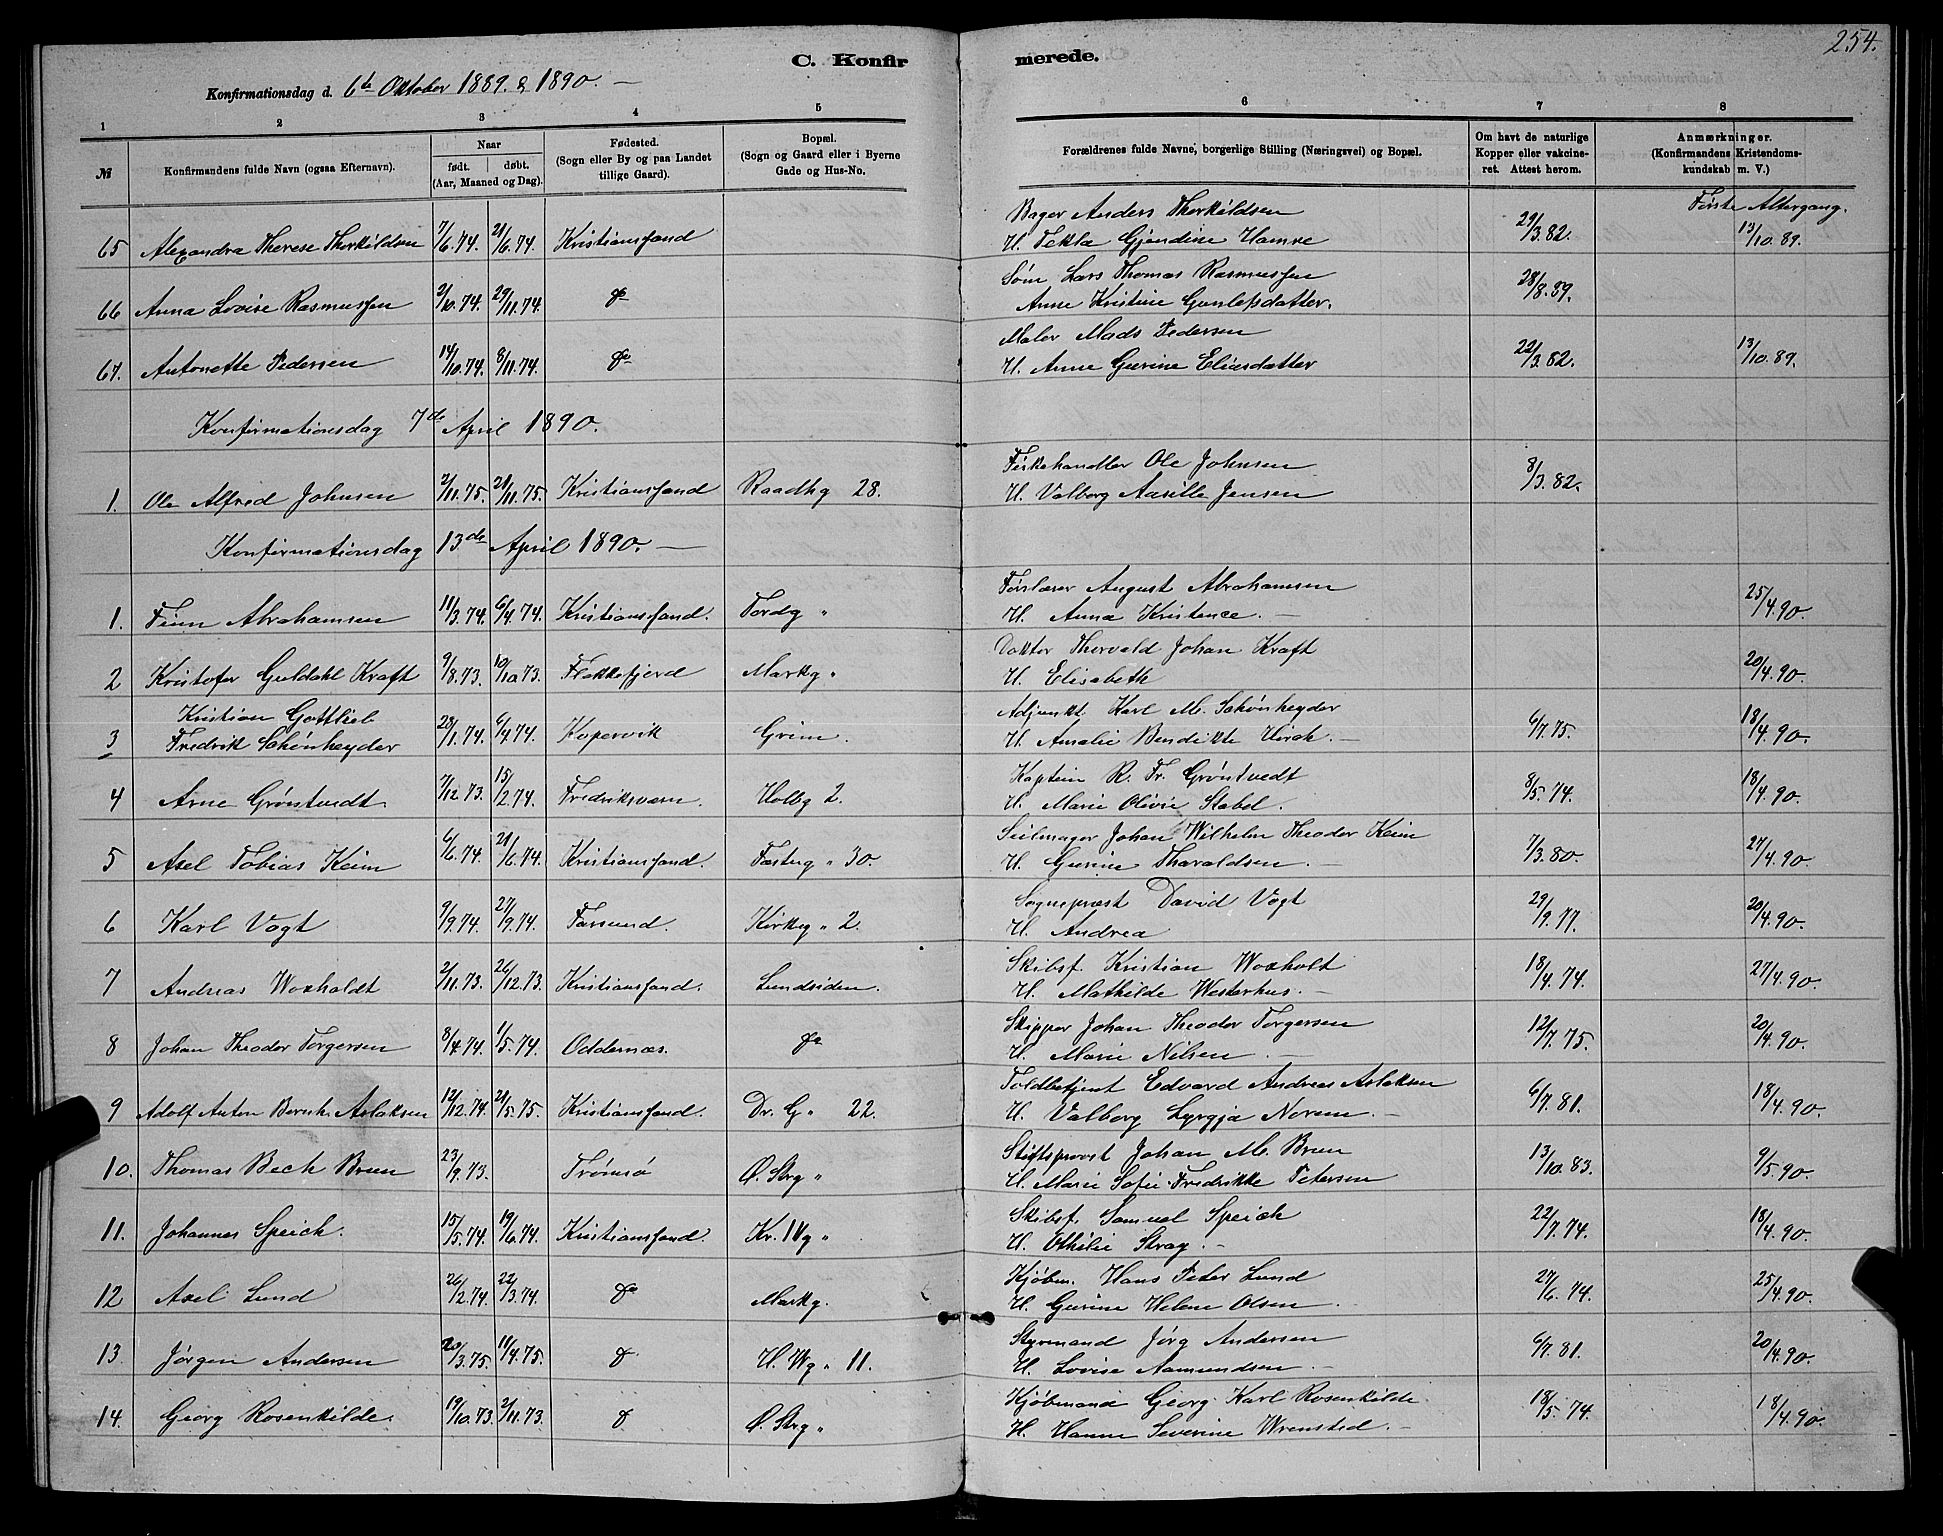 254.
C. Konfirmerede.
Konfirmationsdag d. 6te Oktober 1889. & 1890. —
1 2 3 4 5 6 7 8
№ Konfirmandens fulde Navn (ogsaa Efternavn). Naar født. døbt. (Aar, Maaned og Dag). Fødested. (Sogn eller By og paa Landet tillige Gaard). Bopæl. (Sogn og Gaard eller i Byerne Gade og Hus-No. Forældrenes fulde Navne, borgerlige Stilling (Næringsvei) og Bopæl. Om havt de naturlige Kopper eller vakcineret. Attest herom. Anmærkninger. (Konfirmandens Kristendomskundskab m. V.)
Første Altergang.
Bager Anders Therkildsen
65 Alexandra Therese Therkildsen 7/6.74. 21/6.74. Kristianssand H. Tekla Gjendine Hamre 29/3.82. 13/10.89.
Søm. Lars Thomas Rasmussen
66 Anna Lovise Rasmussen 2/10.74. 29/11.74. do Anne Kristine Gunlefsdatter. 28/8.89.
Maler Mads Pedersen
67. Antonette Pedersen 14/10.74. 8/11.74. do H. Anne Gurine Eliasdatter 22/3.82. 13/10.89.
Konfirmationsdag 7de April 1890.
Fiskehandler Ole Johnsen
1. Ole Alfred Johnsen 2/11.75. 21/11.75. Kristianssand Raadhg 28. H. Valborg Aasille Jensen 8/3.82.
Konfirmationsdag 13de April 1890. —
August Abrahamsen
1. Finn Abrahamsen 11/3.74. 6/4.74. Kristianssand. Tordg " H. Anna Kristence. — 25/4.90.
Doktor Thorvald Johan Kraft
2 Kristofer Guldahl Kraft 9/8.73. 19/10.73. Flekkefjord Markg " H. Elisabeth 20/4.90.
Kristian Gottlieb Adjunkt. Karl M. Schønheyder
3 Fredrik Schønheyder 28/1.74. 6/4.74. Kopervik Grim. H. Amalie Bendikte Hirch. — 6/7.75. 18/4.90.
Kaptein R. Fr. Grøntvedt
4 Arne Grøntvedt 7/12.73. 15/2.74. Fredriksværn. Holbg 2. H. Marie Olivie Stabel. 8/5.74. 18/4.90.
Seilmager Johan Wilhelm Theodor Keim
5 Axel Tobias Keim 6/6.74. 21/6.74. Kristianssand. Fæstng " 30 H. Gurine Tharaldsen. — 7/3.80. 27/4.90.
Sogneprest David Vogt
6 Karl Vogt 9/9.74. 27/9.74. Farsund. Kirkeg " 2. H. Andrea 29/9.77. 20/4.90.
Skibsf. Kristian Woxholt
7 Andreas Woxholdt 2/11.73. 26/12.73. Kristianssand. Lundsiden. H. Mathilde Westerhus. — 18/4.74. 27/4.90.
Skipper Johan Theodor Torgersen
8 Johan Theodor Torgersen 8/4.74. 1/5.74. Oddernæs. do H. Marie Nilsen. — 12/7.75. 20/4.90.
Toldbetjent Edvard Andreas Aslaksen
9 Adolf Anton Bernh. Aslaksen 12/12.74. 21/5.75. Kristianssand. Dr. G " 22. H. Valborg Lyrgja Norem. — 6/7.81. 18/4.90.
Stiftsprovst Johan M. Brun
10. Thomas Bech Brun 23/9.73. Tromsø Ø. Strg " H. Marie Sofie Fredrikke Petersen 13/10.83. 9/5.90.
Skibsf. Samuel Speich
11. Johannes Speich. 15/5.74. 19/6.74. Kristianssand. Kr. IVg " H. Othilie Stray. — 22/7.74. 18/4.90.
Kjøbm. Hans Peter Lund
12 Axel Lund 26/2.74. 22/3.74. do Markg. H. Gurine Helene Olsen 27/6.74. 25/4.90.
Styrmand Jørg Andersen
13. Jørgen Andersen 20/3.75. 11/4.75. do H. Wg " 11. H. Lovise Aamundsen. — 6/7.81. 20/4.90.
Kjøbmand Georg Karl Rosenkilde
14. Georg Rosenkilde. 19/10.73. 2/11.73. do Ø. Strg " H. Hanne Severine Wrensted. — 18/5.74. 18/4.90.